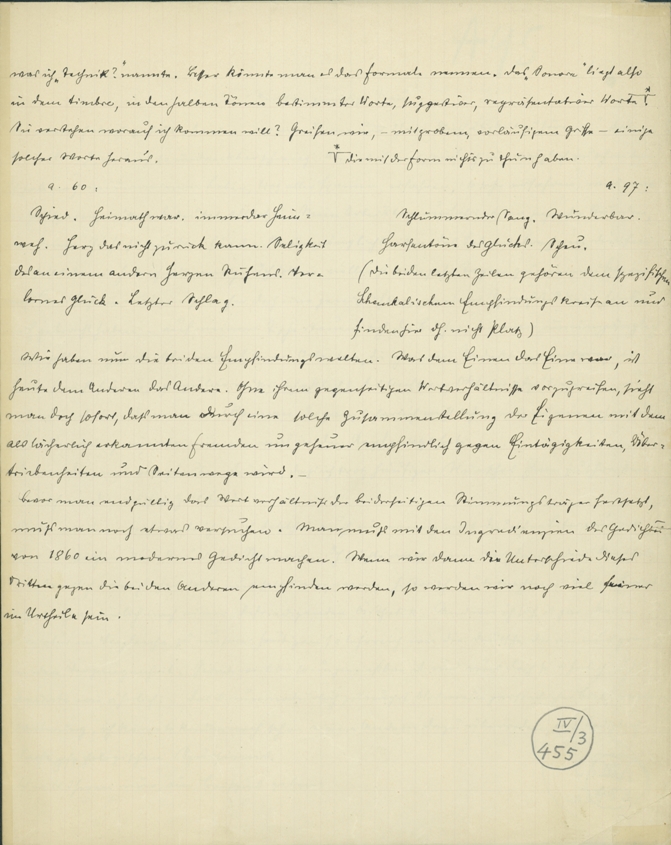 was ich „Technik?" nannte. Besser könnte man es das formale nennen. Das „Sonore" liegt also
in dem timbre, in den halben Tönen bestimmter Worte, suggestiver, repräsentativer Worte
Sie verstehen worauf ich kommen will? Greifen wir, – mit grobem, vorläufigem Griffe – einige
solcher Worte heraus.
die mit der Form nichts zu thun haben.
a. 60:
a. 97:
Schied. Heimath war. immerdar Heim=
weh. Herz das nicht zurück kann. Seligkeit
des an einem andern Herzen Ruhens. Ver=
lornes Glück. Letzter Schlag.
Schlummernder Sang. Wunderbar.
Harfentöne des Glücks. Scheu.
(Die beiden letzten Zeilen gehören dem spezifischen
Empfindungskreise an und
finden hier dh. nicht Platz)
Wir haben nun die beiden Empfindungswelten. Was dem Einen das Eine war, ist
heute dem Anderen das Andere. Ohne ihrem gegenseitigen Wertverhältnisse vorzugreifen, sieht
man doch sofort, dass man durch eine solche Zusammenstellung des Eigenen mit dem
als lächerlich erkannten Fremden ungeheuer empfindlich gegen Eintägigkeiten, Über=
triebenheiten und Seitenwege wird. –
Bevor man endgiltig das Wertverhältnis der beiderseitigen Stimmungsträger festsetzt,
muss man noch etwas versuchen. Man muss mit den Ingredienzien des Gedichtes
von 1860 ein modernes Gedicht machen. Wenn wir dann die Unterschiede dieses
Dritten gegen die beiden Anderen empfinden werden, so werden wir noch viel feiner
im Urtheile sein.
IV/3
455